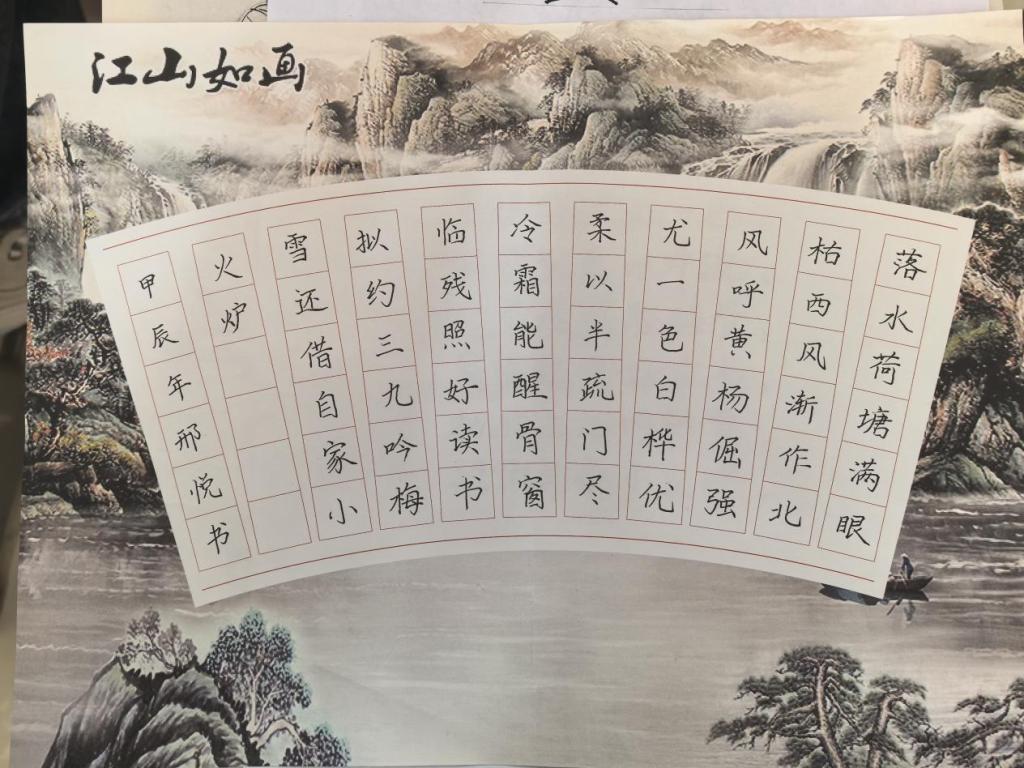 江山如画
落水荷塘满眼
枯西风渐作北
风呼黄杨倔强
尤一色白桦优
柔以半疏门尽
冷霜能醒骨窗
临残照好读书
拟约三九吟梅
雪还借自家小
火炉
甲辰年邢悦书